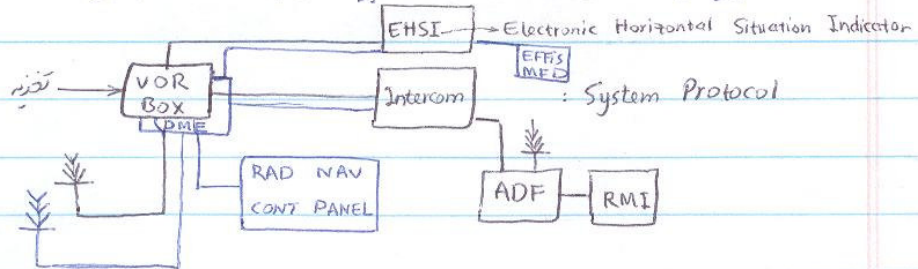 EHSI → Electronic Horizontal Situation Indicator
EFFiS
MFD
VOR
BOX
DME
Intercom
: System Protocol
RAD NAV
CONT PANEL
ADF
RMI